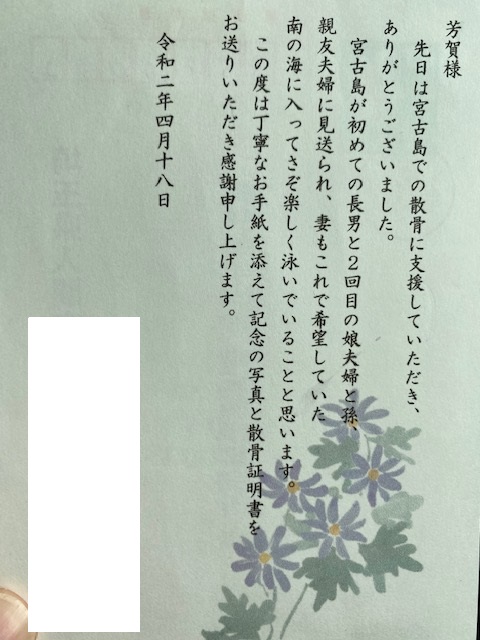 芳賀様
先日は宮古島での散骨に支援していただき、
ありがとうございました。
宮古島が初めての長男と２回目の娘夫婦と孫、
親友夫婦に見送られ、妻もこれで希望していた
南の海に入ってさぞ楽しく泳いでいることと思います。
この度は丁寧なお手紙を添えて記念の写真と散骨証明書を
お送りいただき感謝申し上げます。
令和二年四月十八日